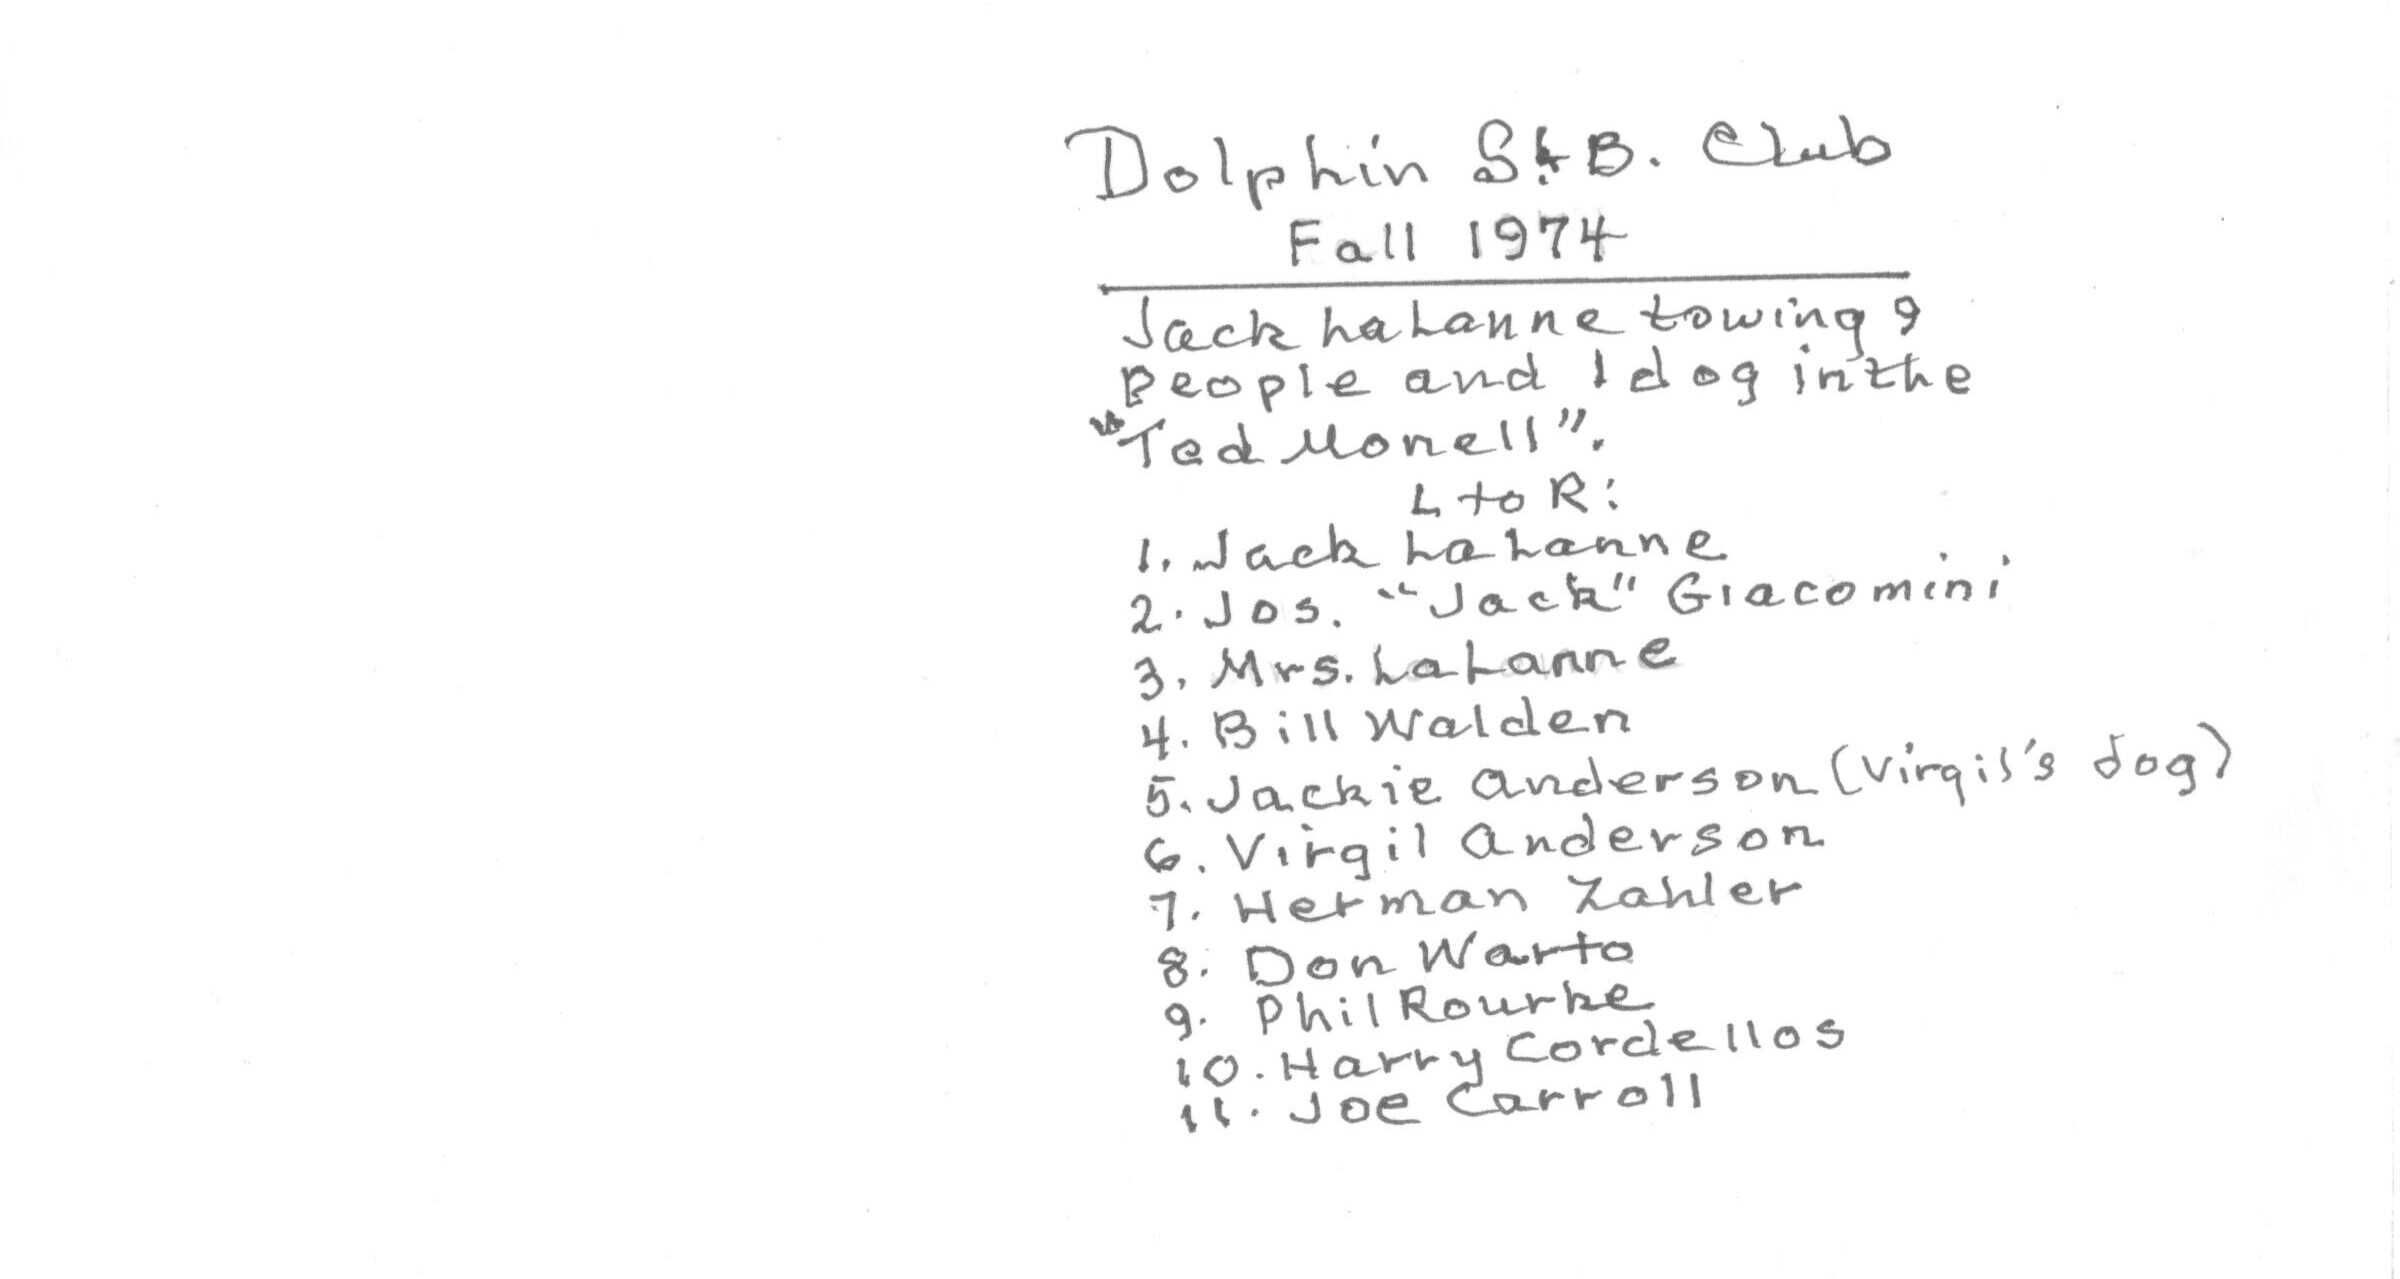 Dolphin S & B. Club
Fall 1974
Jack LaLanne towing 9
People and 1 dog in the
"Ted Monell".
L to R:
1. Jack LaLanne
2. Jos. "Jack" Giacomini
3. Mrs. LaLanne
4. Bill Walden
5. Jackie Anderson (Virgil's dog)
6. Virgil Anderson
7. Herman Zahler
8. Don Warto
9. Phil Rourke
10. Harry Cordellos
11. Joe Carroll